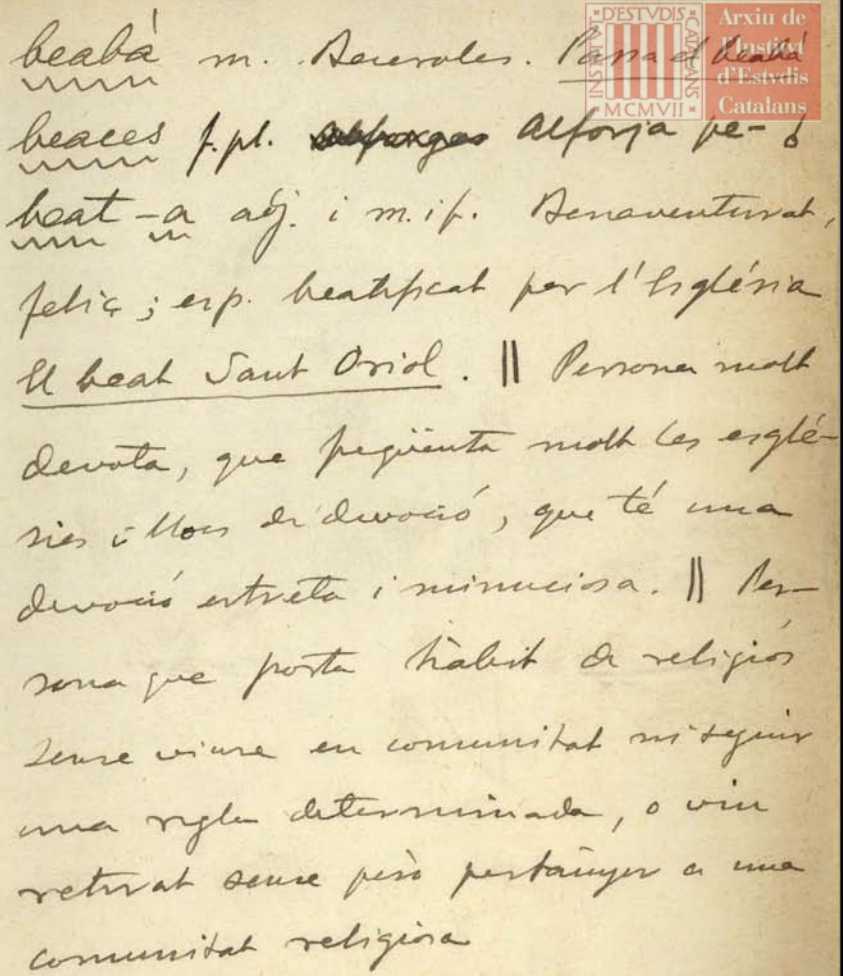 beabà m. Beceroles. Passa el beabà
beaces f.pl. Alforja pe-
beat -a adj. i m.i f. Benaventurat,
feliç; esp. beatificat per l'Església
El beat Sant Oriol. || Persona molt
devota, que freqüenta molt les esglé-
sies i llocs de devoció, que té una
devoció estreta i minuciosa. || Per-
sona que porta hàbit de religiós
sense viure en comunitat ni seguir
una regla determinada, o viu
retirat sense però pertànyer a una
comunitat religiosa
INSTITVT
D'ESTVDIS
CATALANS
MCMVII
Arxiu de
l'Institvt
d'Estvdis
Catalans